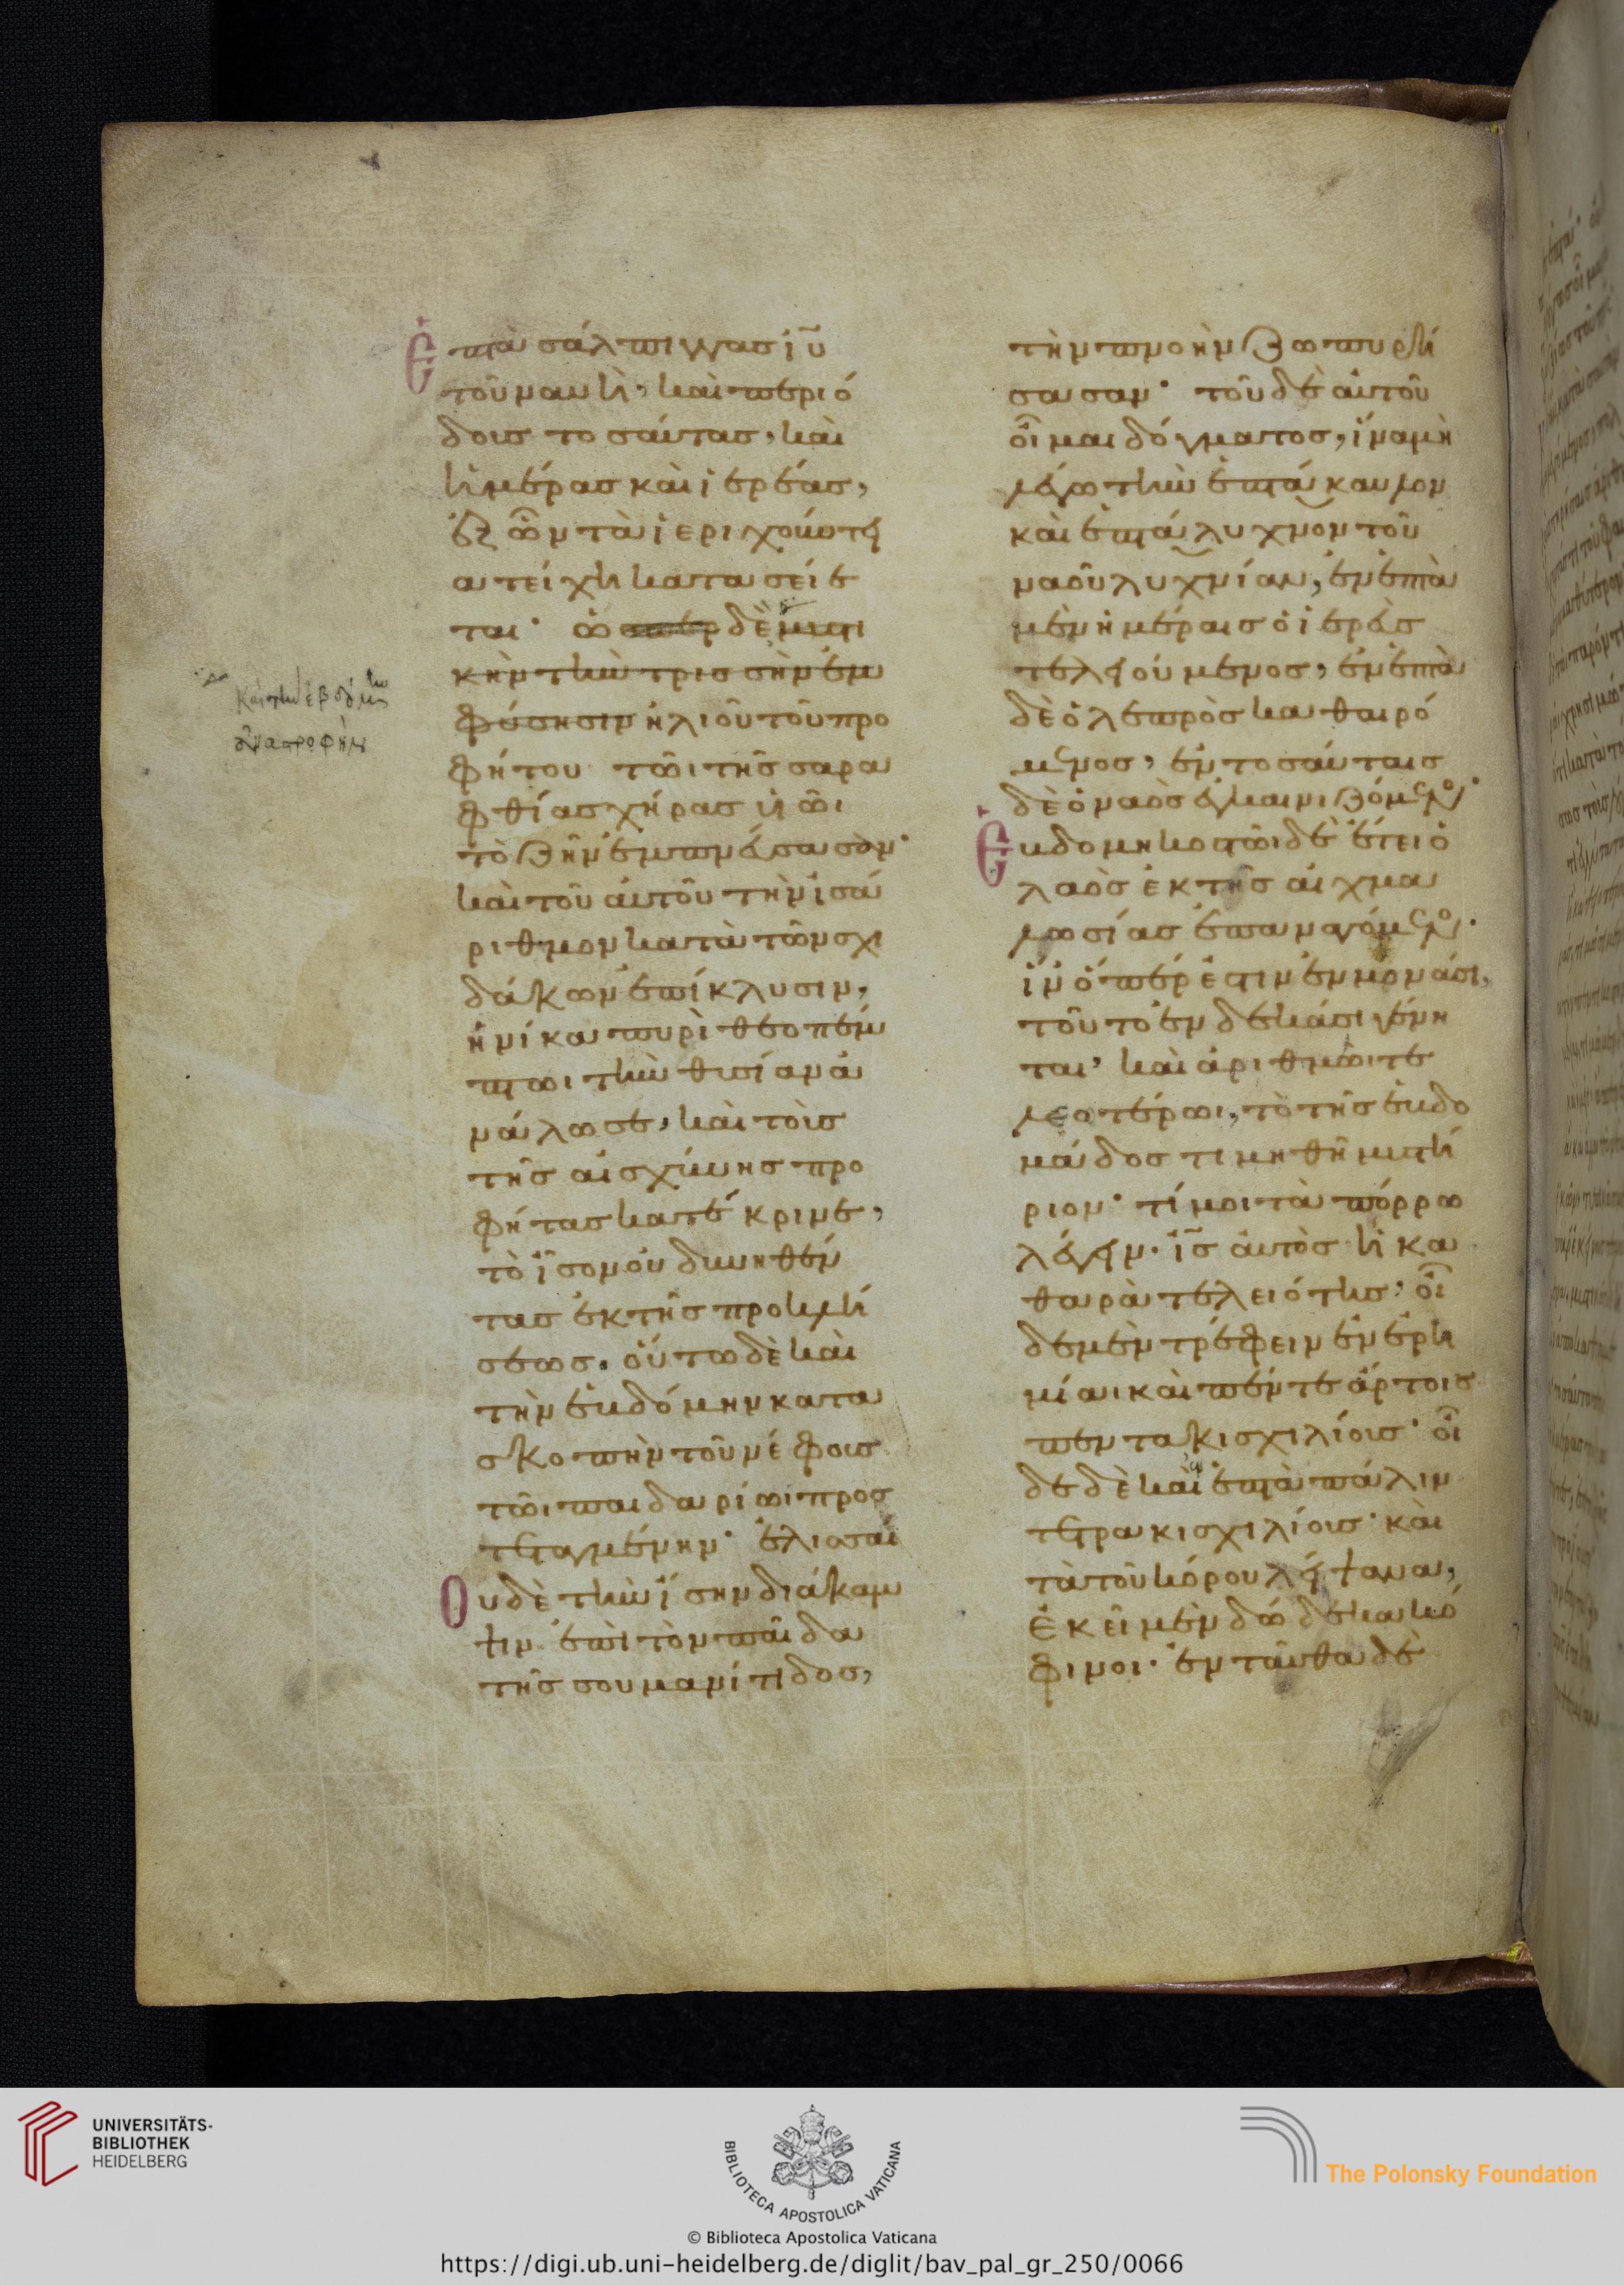 Ἑπτὰ σάλπιγγας ἰῦ
τοῦ ναυῆ, καὶ περιό
δους τοσαύτας, καὶ
ἡμέρας καὶ ἱερέας,
ἐξ ὧν τὰ ἱεριχούντει
α τείχη κατασείε
ται· ὥσπερ δὲ μυστι
κὴν τὴν τρισσὴν ἐμ
φύσησιν ἡλιοῦ τοῦ προ
φήτου τῶι τῆς σαρα
φθίας χήρας ϋἱῶι
τὸ ζῆν ἐμπνεύσασαν·
καὶ τοῦ αὐτοῦ τὴν ἰσά
ριθμον κατὰ τῶν σχι
δάκων ἐπίκλυσιν,
ἡνίκα πυρὶ θεοπέμ
πτωι τὴν θυσίαν ἀ
νάλωσε, καὶ τοὺς
τῆς αἰσχύνης προ
φήτας κατέκρινε,
τὸ ἴσον οὐ δυνηθέν
τας ἐκ τῆς προκλή
σεως. οὕτω δὲ καὶ
τὴν ἑβδόμην κατα
σκοπὴν τοῦ νέφους
τῶι παιδαρίωι προσ
τεταγμένην· ἐλισσαί
Οὐδὲ τὴν ἴσην διάκαμ
ψιν ἐπὶ τὸν παῖδα
τῆς σουμανίτιδος,
καὶ τὴν ἑβδόμην
ἀναστροφὴν
τὴν πνοὴν ζωπυρή
σασαν· τοῦ δὲ αὐτοῦ
οἶμαι δόγματος, ἵνα μὴ
λέγω τὴν ἑπτάκαυλον
καὶ ἑπτάλυχνον τοῦ
ναοῦ λυχνίαν, ἐν ἑπτὰ
μὲν ἡμέραις ὁ ἱερεὺς
τελειούμενος, ἐν ἑπτὰ
δὲ ὁ λεπρὸς καθαιρό
μενος, ἐν τοσαύταις
δὲ ὁ ναὸς ἐγκαινιζόμενος·
Ἑβδομηκοστῶι δὲ ἔτει ὁ
λαὸς ἐκ τῆς αἰχμα
λωσίας ἐπαναγόμενος·
ἵν' ὅπέρ ἐστιν ἐν μονάσι,
τοῦτο ἐν δεκάσι γένη
ται, καὶ ἀριθμῶι τε
λεωτέρωι, τὸ τῆς ἑβδο
μάδος τιμηθῆ μυστή
ριον· τί μοι τὰ πόρρω
λέγειν· ἰς αὐτὸς ἡ κα
θαρὰ τελειότης, οἶ
δε μὲν τρέφειν ἐν ἐρη
μίαι καὶ πέντε ἄρτοις
πεντακισχιλίους· οἶ
δε δὲ καὶ ἑπτὰ πάλιν
τετρακισχιλίους· καὶ
τὰ τοῦ κόρου λείψανα,
ἐκεῖ μὲν δώδεκα κό
φινοι· ἐνταῦθα δὲ
UNIVERSITÄTS-
BIBLIOTHEK
HEIDELBERG
BIBLIOTECA APOSTOLICA VATICANA
© Biblioteca Apostolica Vaticana
The Polonsky Foundation
https://digi.ub.uni-heidelberg.de/diglit/bav_pal_gr_250/0066